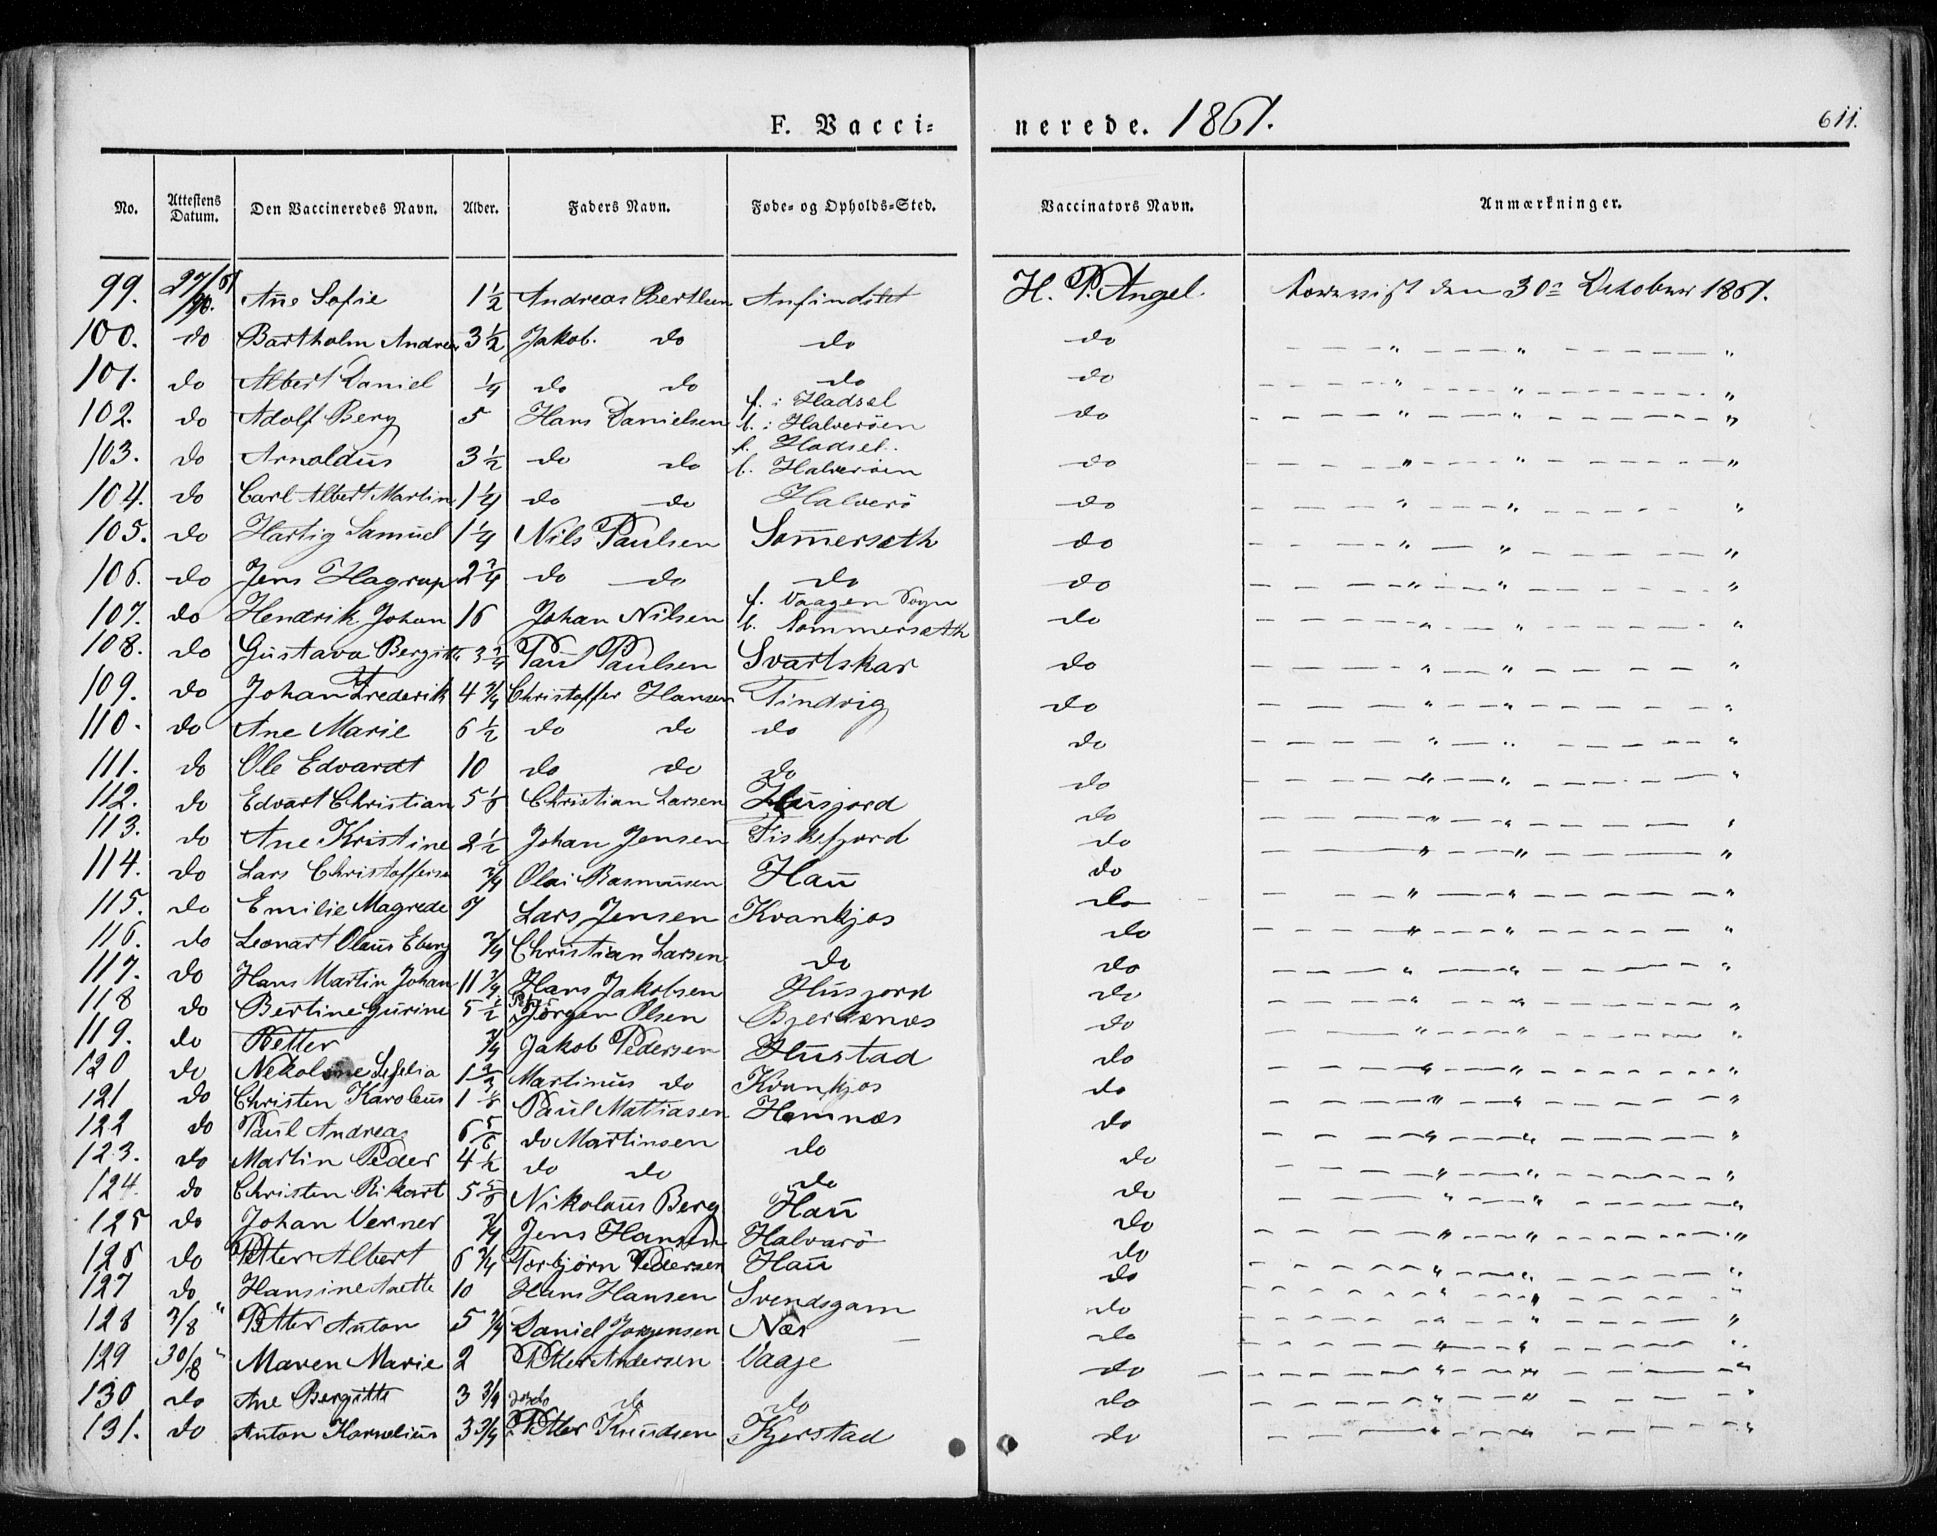 F. Vacci- nerede. 1861. 611.
No. Attestens Datum. Den Vaccineredes Navn. Alder. Faders Navn. Føde- og Opholds-Sted. Vaccinators Navn. Anmærkninger.
99. Ane Sofie 1 1/2 Andreas H. P. Angel. den 30 Oktober 1861.
100. do Bartholm Andreas 3 1/2 Jakob. do do do — — — " — — — " — — — "
101. do Albert Daniel 1/4 do do do do — — — " — — — " — — — "
102. do Adolf Berg 5 Hans Danielsen f. i Hadsel b. i Halverøen do — — — " — — — " — — — "
103. do Arnoldus 3 1/2 do do f. Hadsel. b. Halverøen do — — — " — — — " — — — "
104. do Carl Albert Martin 1 1/4 do do Halverö do — — — " — — — " — — — "
105. do Hartig Samuel 1 1/4 Nils Paulsen Somersæth do — — — " — — — " — — — "
106. do Jens Hagrup 2 3/4 do do do do — — — " — — — " — — — "
107. do Hendrik Johan 16 Johan Nilsen f. Vaagen Sogn b. Sommersæth do — — — " — — — " — — — "
108. do Gustava Bergitte 3 3/4 Paul Paulsen Svartskar do — — — " — — — " — — — "
109. do Johan Frederik 4 3/4 Christoffer Hansen Tindvig do — — — " — — — " — — — "
110. do Ane Marie 6 1/2 do do do do — — — " — — — " — — — "
111. do Ole Edvardt 10 do do do do — — — " — — — " — — — "
112. do Edvart Christian 5 Christian Larsen Husjord do — — — " — — — " — — — "
113. do Ane Kristine 2 1/2 Johan Jensen Fiskefjord do — — — " — — — " — — — "
114. do Lars 3/4 Olai Rasmusen Hau do — — — " — — — " — — — "
115. do Emilie Magrede 9 Lars Jensen Kvankjos do — — — " — — — " — — — "
116. do Leonart Olaus Eberg 3/4 Christian Larsen do do — — — " — — — " — — — "
117. do Hans Martin Johan 11 3/4 Hans Jakobsen Husjord do — — — " — — — " — — — "
118 do Bertine Gurine 5 1/2 Jörgen Olsen Bjerkenæs do — — — " — — — " — — — "
119. do Petter 3/4 Jakob Pedersen Hustad do — — — " — — — " — — — "
120 do 1 2/3 Martinus do Kvankjos do — — — " — — — " — — — "
121 do Christen Karoleus 1 Paul Matiasen Hemnæs do — — — " — — — " — — — "
122 do Paul Andreas 6 5/6 do Martinsen do do — — — " — — — " — — — "
123. do Martin Peder 4 1/2 do do do do — — — " — — — " — — — "
124. do Christen Rikart 5 Nikolaus Berg Hau do — — — " — — — " — — — "
125 do Johan Verner 3/4 Jens Hansen Halvarö do — — — " — — — " — — — "
126 do Petter Albert 6 3/4 Torbjørn Pedersen Hau do — — — " — — — " — — — "
127 do Hansine Anette 10 Hans Hansen Svendsgam do — — — " — — — " — — — "
128 3/8 " Petter Anton 5 3/4 Daniel Jorgensen Næs do — — — " — — — " — — — "
129 30/8 " Maren Marie 2 Petter Andersen Vaaje do — — — " — — — " — — — "
130 do Ane Bergitte 3 3/4 do do do — — — " — — — " — — — "
131. do Anton Kornelius 3 3/4 Petter Knudsen Kjerstad do — — — " — — — " — — — "